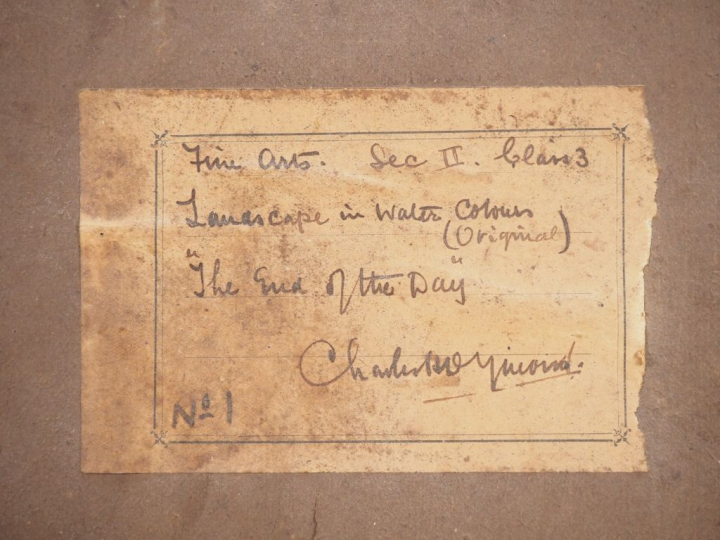 Fine Arts. Sec II. Class 3
Landscape in Water Colours
(Original)
"The End of the Day"
Charles
No 1